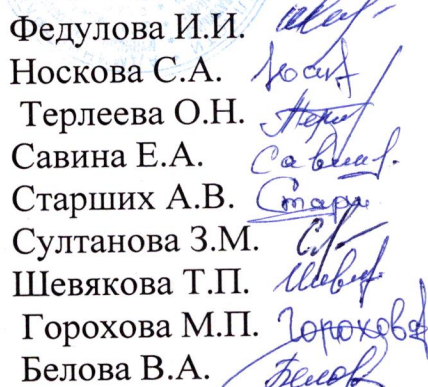 Федулова И.И.
Носкова С.А.
Терлеева О.Н.
Савина Е.А. Савин
Старших А.В. Стар
Султанова З.М.
Шевякова Т.П.
Горохова М.П. Горохова
Белова В.А. Белов